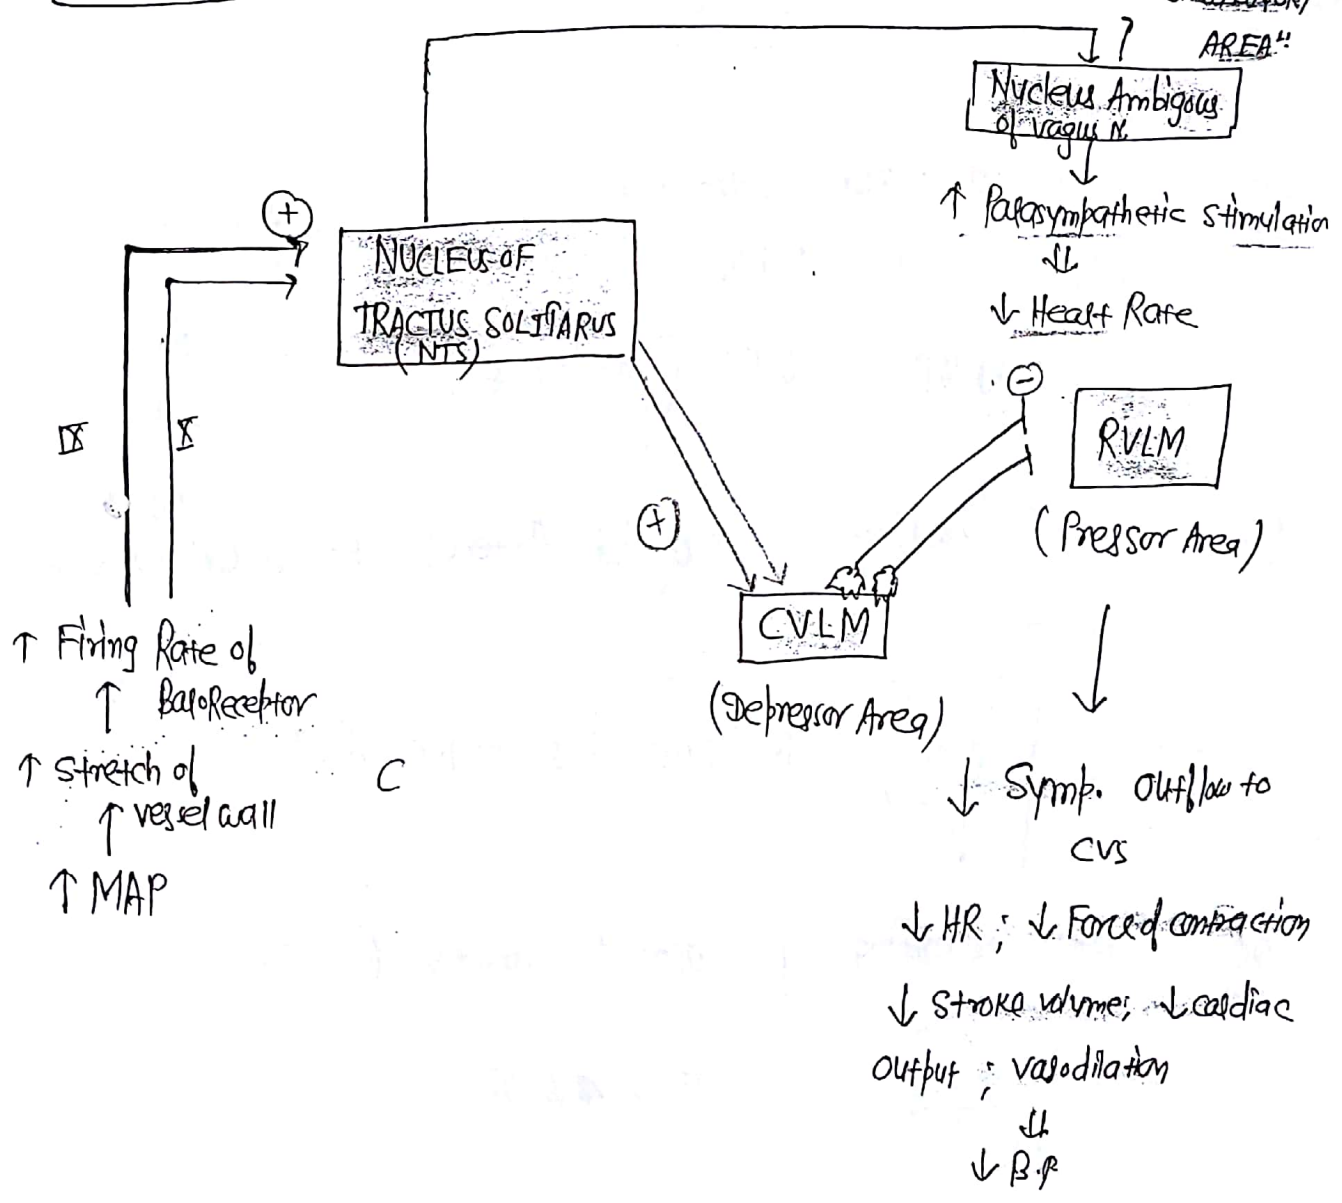 AREA"
Nucleus Ambigous
of vagus N.
↑ Parasympathetic stimulation
⇓
↓ Heart Rate
+
NUCLEUS OF
TRACTUS SOLITARUS
(NTS)
IX
X
−
RVLM
(Pressor Area)
+
CVLM
(Depressor Area)
↑ Firing Rate of
↑ BaroReceptor
↑ Stretch of
↑ vessel wall
↑ MAP
C
↓ Symp. Outflow to
CVS
↓ HR ; ↓ Force of contraction
↓ Stroke volume; ↓ cardiac
Output ; vasodilation
⇓
↓ B.P